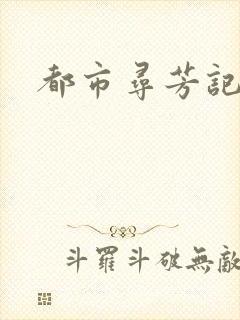 都市尋芳記
斗羅斗破無敵